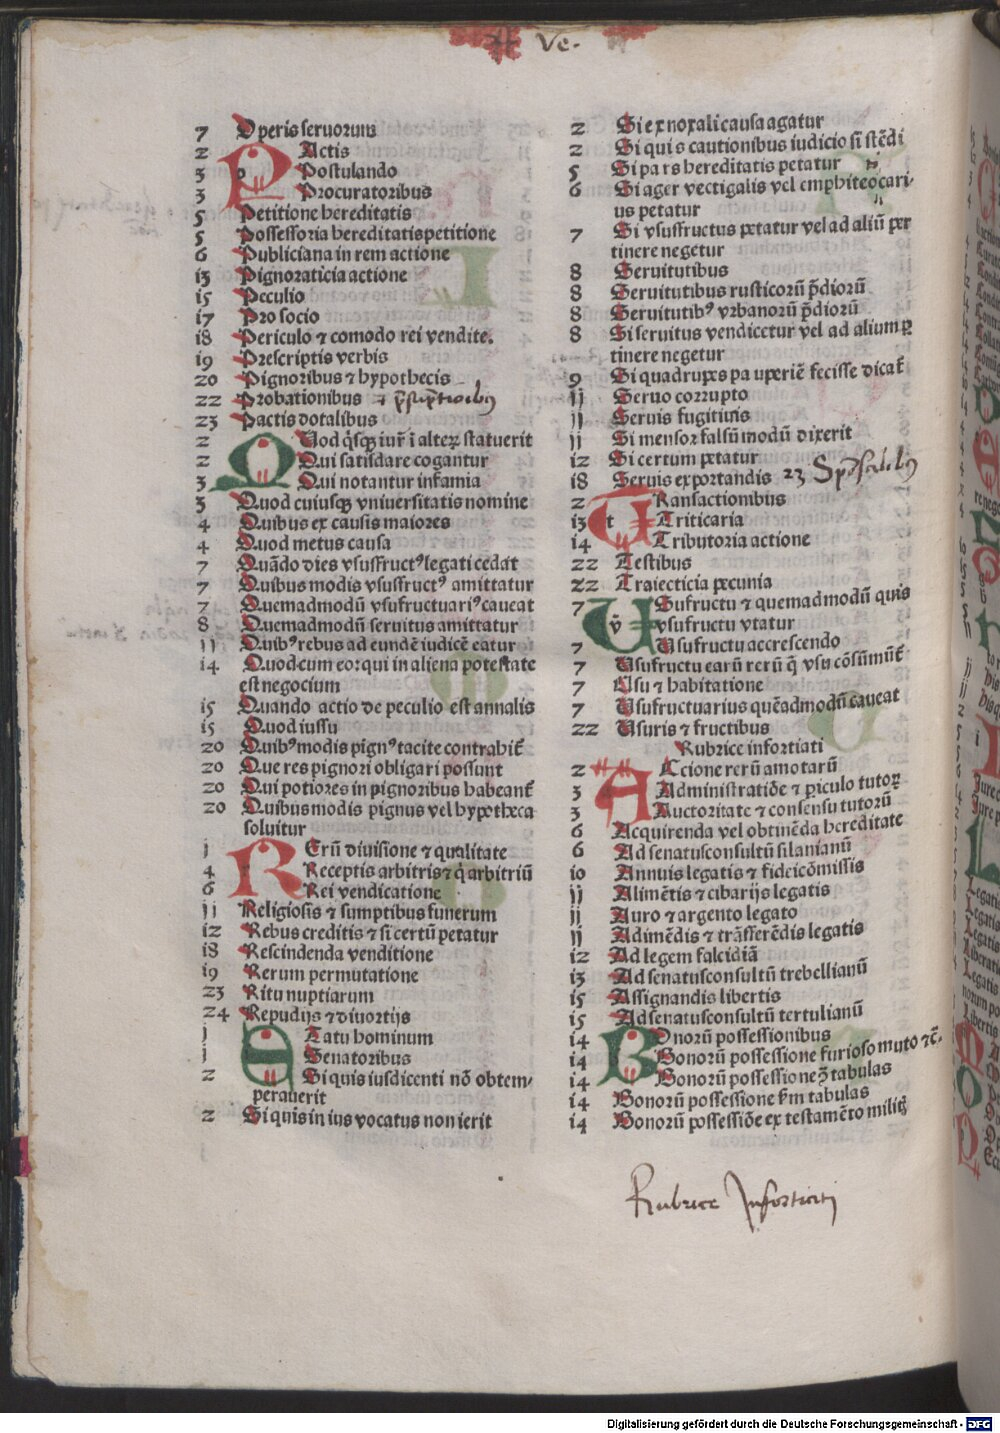 Ve.
7 Operis seruorum
2 PActis
3 Postulando
3 Procuratoribus
5 Petitione hereditatis
5 Possessoria hereditatis petitione
6 Publiciana in rem actione
i3 Pignoraticia actione
i5 Peculio
i7 Pro socio
i8 Periculo ⁊ comodo rei vendite.
i9 Prescriptis verbis
20 Pignoribus ⁊ hypothecis
22 Probationibus ⁊
23 Pactis dotalibus
2 QUod q̃sqꝫ iur̃ ĩ alteꝝ statuerit
2 Qui satisdare cogantur
3 Qui notantur infamia
3 Quod cuiusqꝫ vniuersitatis nomine
4 Quibus ex causis maiores
4 Quod metus causa
7 Quãdo dies vsusfructꝰ legati cedat
7 Quibus modis vsusfructꝰ amittatur
7 Quemadmodũ vsufructuariꝰ caueat
8 Quemadmodũ seruitus amittatur
ii Quibꝰ rebus ad eundẽ iudicẽ eatur
i4 Quod cum eo qui in aliena potestate
est negocium
i5 Quando actio de peculio est annalis
i5 Quod iussu
20 Quibꝰ modis pignꝰ tacite contrahit̃
20 Que res pignori obligari possunt
20 Qui potiores in pignoribus habeant̃
20 Quibus modis pignus vel hypotheca
soluitur
j RErũ diuisione ⁊ qualitate
4 Receptis arbitris ⁊ q̃ arbitriũ
6 Rei vendicatione
ii Religiosis ⁊ sumptibus funerum
i2 Rebus creditis ⁊ si certũ petatur
i8 Rescindenda venditione
i9 Rerum permutatione
23 Ritu nuptiarum
24 Repudijs ⁊ diuortijs
j STatu hominum
j Senatoribus
2 Si quis iusdicenti nõ obtem-
perauerit
2 Si quis in ius vocatus non ierit
2 Si ex noxali causa agatur
2 Si quis cautionibus iudicio si stẽdi
5 Si pars hereditatis petatur
6 Si ager vectigalis vel emphiteocari-
us petatur
7 Si vsusfructus petatur vel ad aliũ per
tinere negetur
8 Seruitutibus
8 Seruitutibus rusticorũ p̃diorũ
8 Seruitutibꝰ vrbanorũ p̃diorũ
8 Si seruitus vendicetur vel ad alium ꝑ
tinere negetur
9 Si quadrupes pauperiẽ fecisse dicat̃
ii Seruo corrupto
ii Seruis fugitiuis
ii Si mensor falsũ modũ dixerit
i2 Si certum petatur
i8 Seruis exportandis 23
2 TRansactionibus
i3 Triticaria
i4 Tributoria actione
22 Testibus
22 Traiecticia pecunia
7 VSufructu ⁊ quemadmodũ quis
vsufructu vtatur
7 Usufructu accrescendo
7 Usufructu earũ rerũ q̃ vsu cõsũmũt̃
7 Usu ⁊ habitatione
7 Usufructuarius quẽadmodũ caueat
22 Usuris ⁊ fructibus
Rubrice infortiati
2 ACcione rerũ amotarũ
3 Administratiõe ⁊ ꝑiculo tutoꝝ
3 Auctoritate ⁊ consensu tutorũ
6 Acquirenda vel obtinẽda hereditate
6 Ad senatusconsultũ silanianũ
io Annuis legatis ⁊ fideicõmissis
ii Alimẽtis ⁊ cibarijs legatis
ii Auro ⁊ argento legato
ii Adimẽdis ⁊ trãsferẽdis legatis
i2 Ad legem falcidiã
i3 Ad senatusconsultũ trebellianũ
i5 Assignandis libertis
i5 Ad senatusconsultũ tertulianũ
i4 BOnorũ possessionibus
i4 Bonorũ possessione furioso muto ⁊c̃.
i4 Bonorũ possessione ↄ̃ tabulas
i4 Bonorũ possessione fm tabulas
i4 Bonorũ possessiõe ex testamẽto militꝭ
Rubrice Infortiati
Digitalisierung gefördert durch die Deutsche Forschungsgemeinschaft - DFG